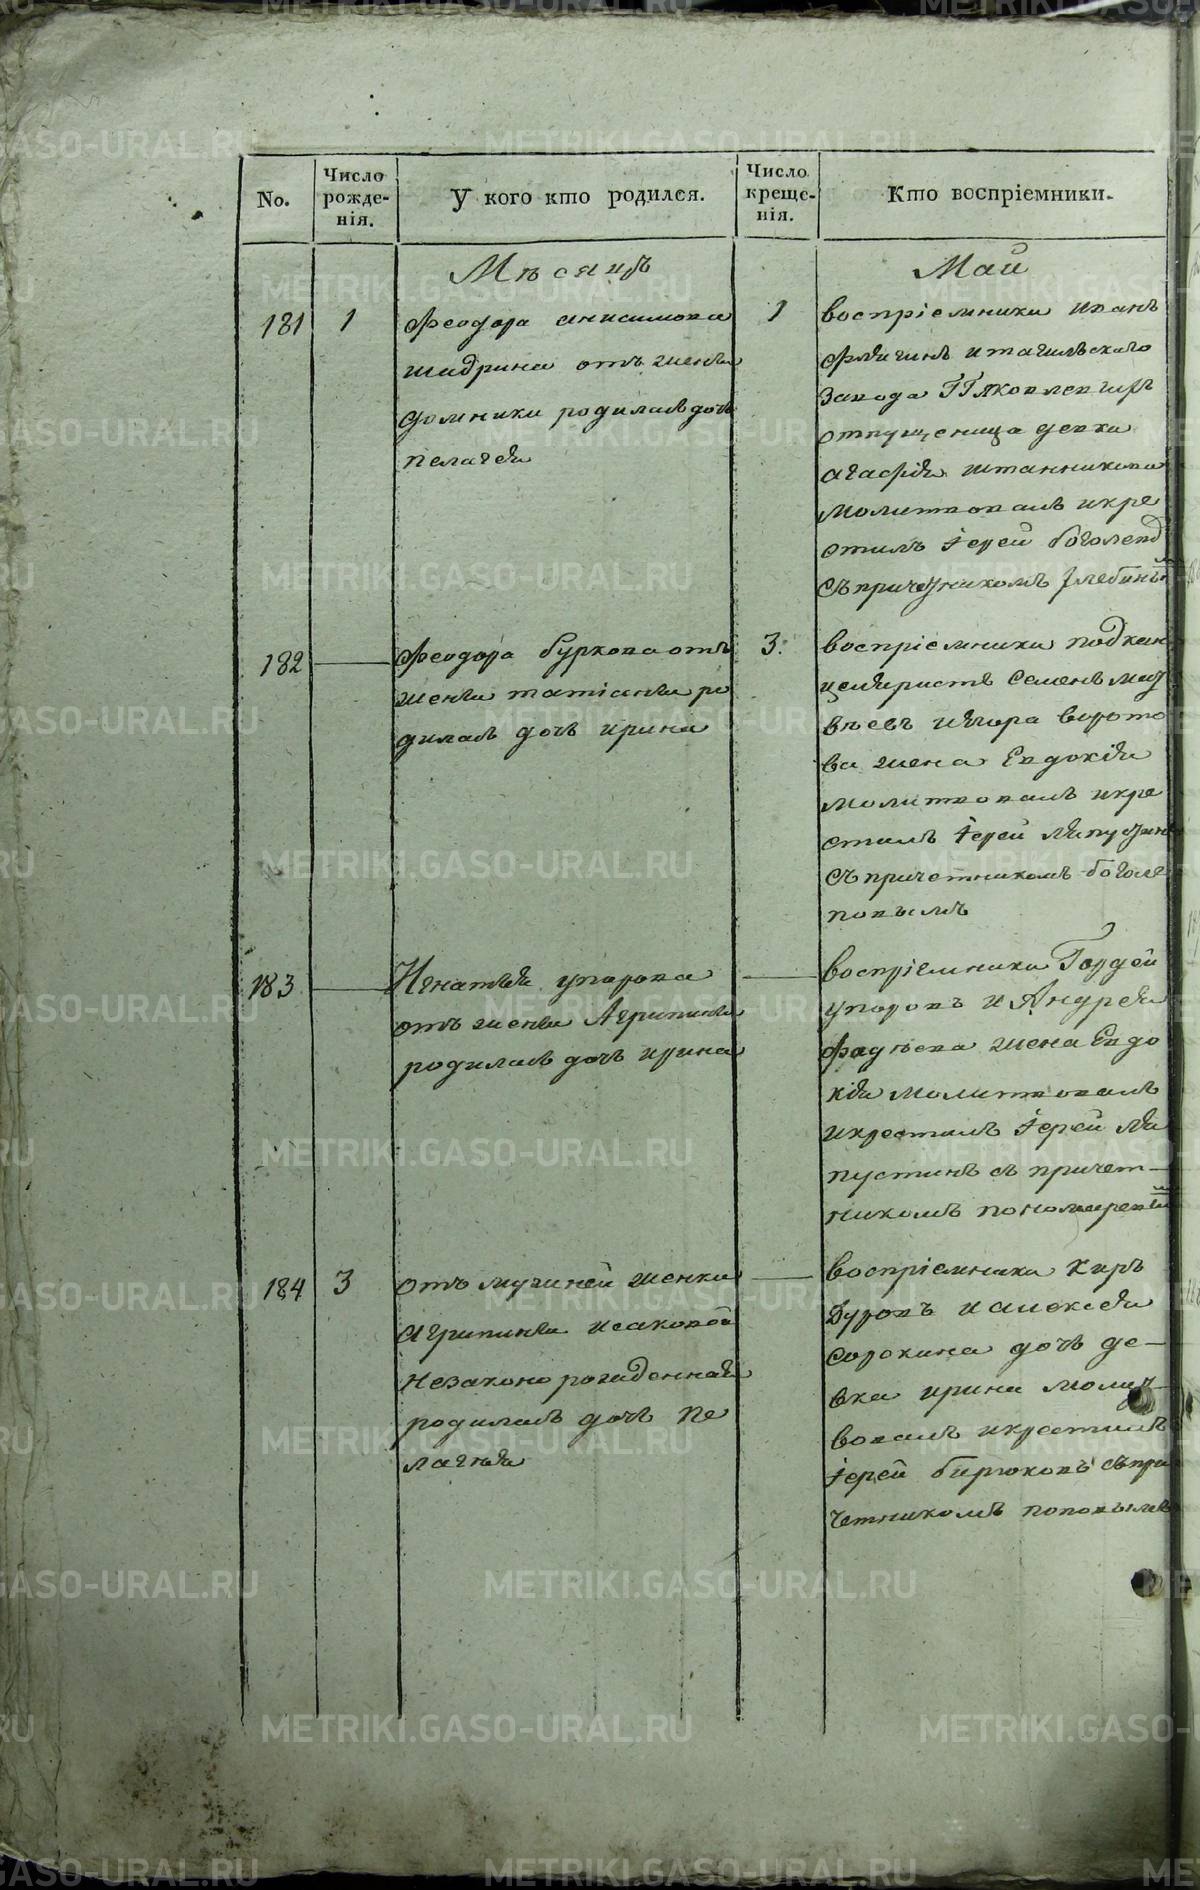 No.
Число рожде-нія.
У кого кто родился.
Число креще-нія.
Кто воспріемники.
Мѣсяцъ
Май
181
1
Феодора анисимова
шадрина отъ жены
домники родилась дочь
пелагея
1
воспріемники иванъ
и тагильскаго
завода
отпущеница девка
агафія штанникова
молитвовалъ и кре
стилъ Іерей боголепо
съ причетникомъ
182
Феодора буркова отъ
жены татіаны ро
дилась дочь ирина
3.
воспріемники подкан
целяристъ Семенъ мат
вѣевъ и
ва жена Евдокія
молитвовалъ и кре
стилъ Іерей ляпустин
съ причетникомъ боголе
повымъ
183
Игнатья упорова
отъ жены Агрипины
родилась дочь ирина
воспріемники Гордей
упоровъ и Андрея
фадѣева жена Евдо
кія молитвовалъ
и крестилъ Іерей ля
пустинъ съ причет-
никомъ пономарев
184
3
отъ жонки
агрипины исаковой
незаконорожденная
родилась дочь Пе
лагея
воспріемники Киръ
Дуровъ и алексѣя
сорокина дочь де-
вка ирина молит-
вовалъ и крестилъ
Іерей бирюковъ съ при
четникомъ поповымъ
METRIKI.GASO-URAL.RU